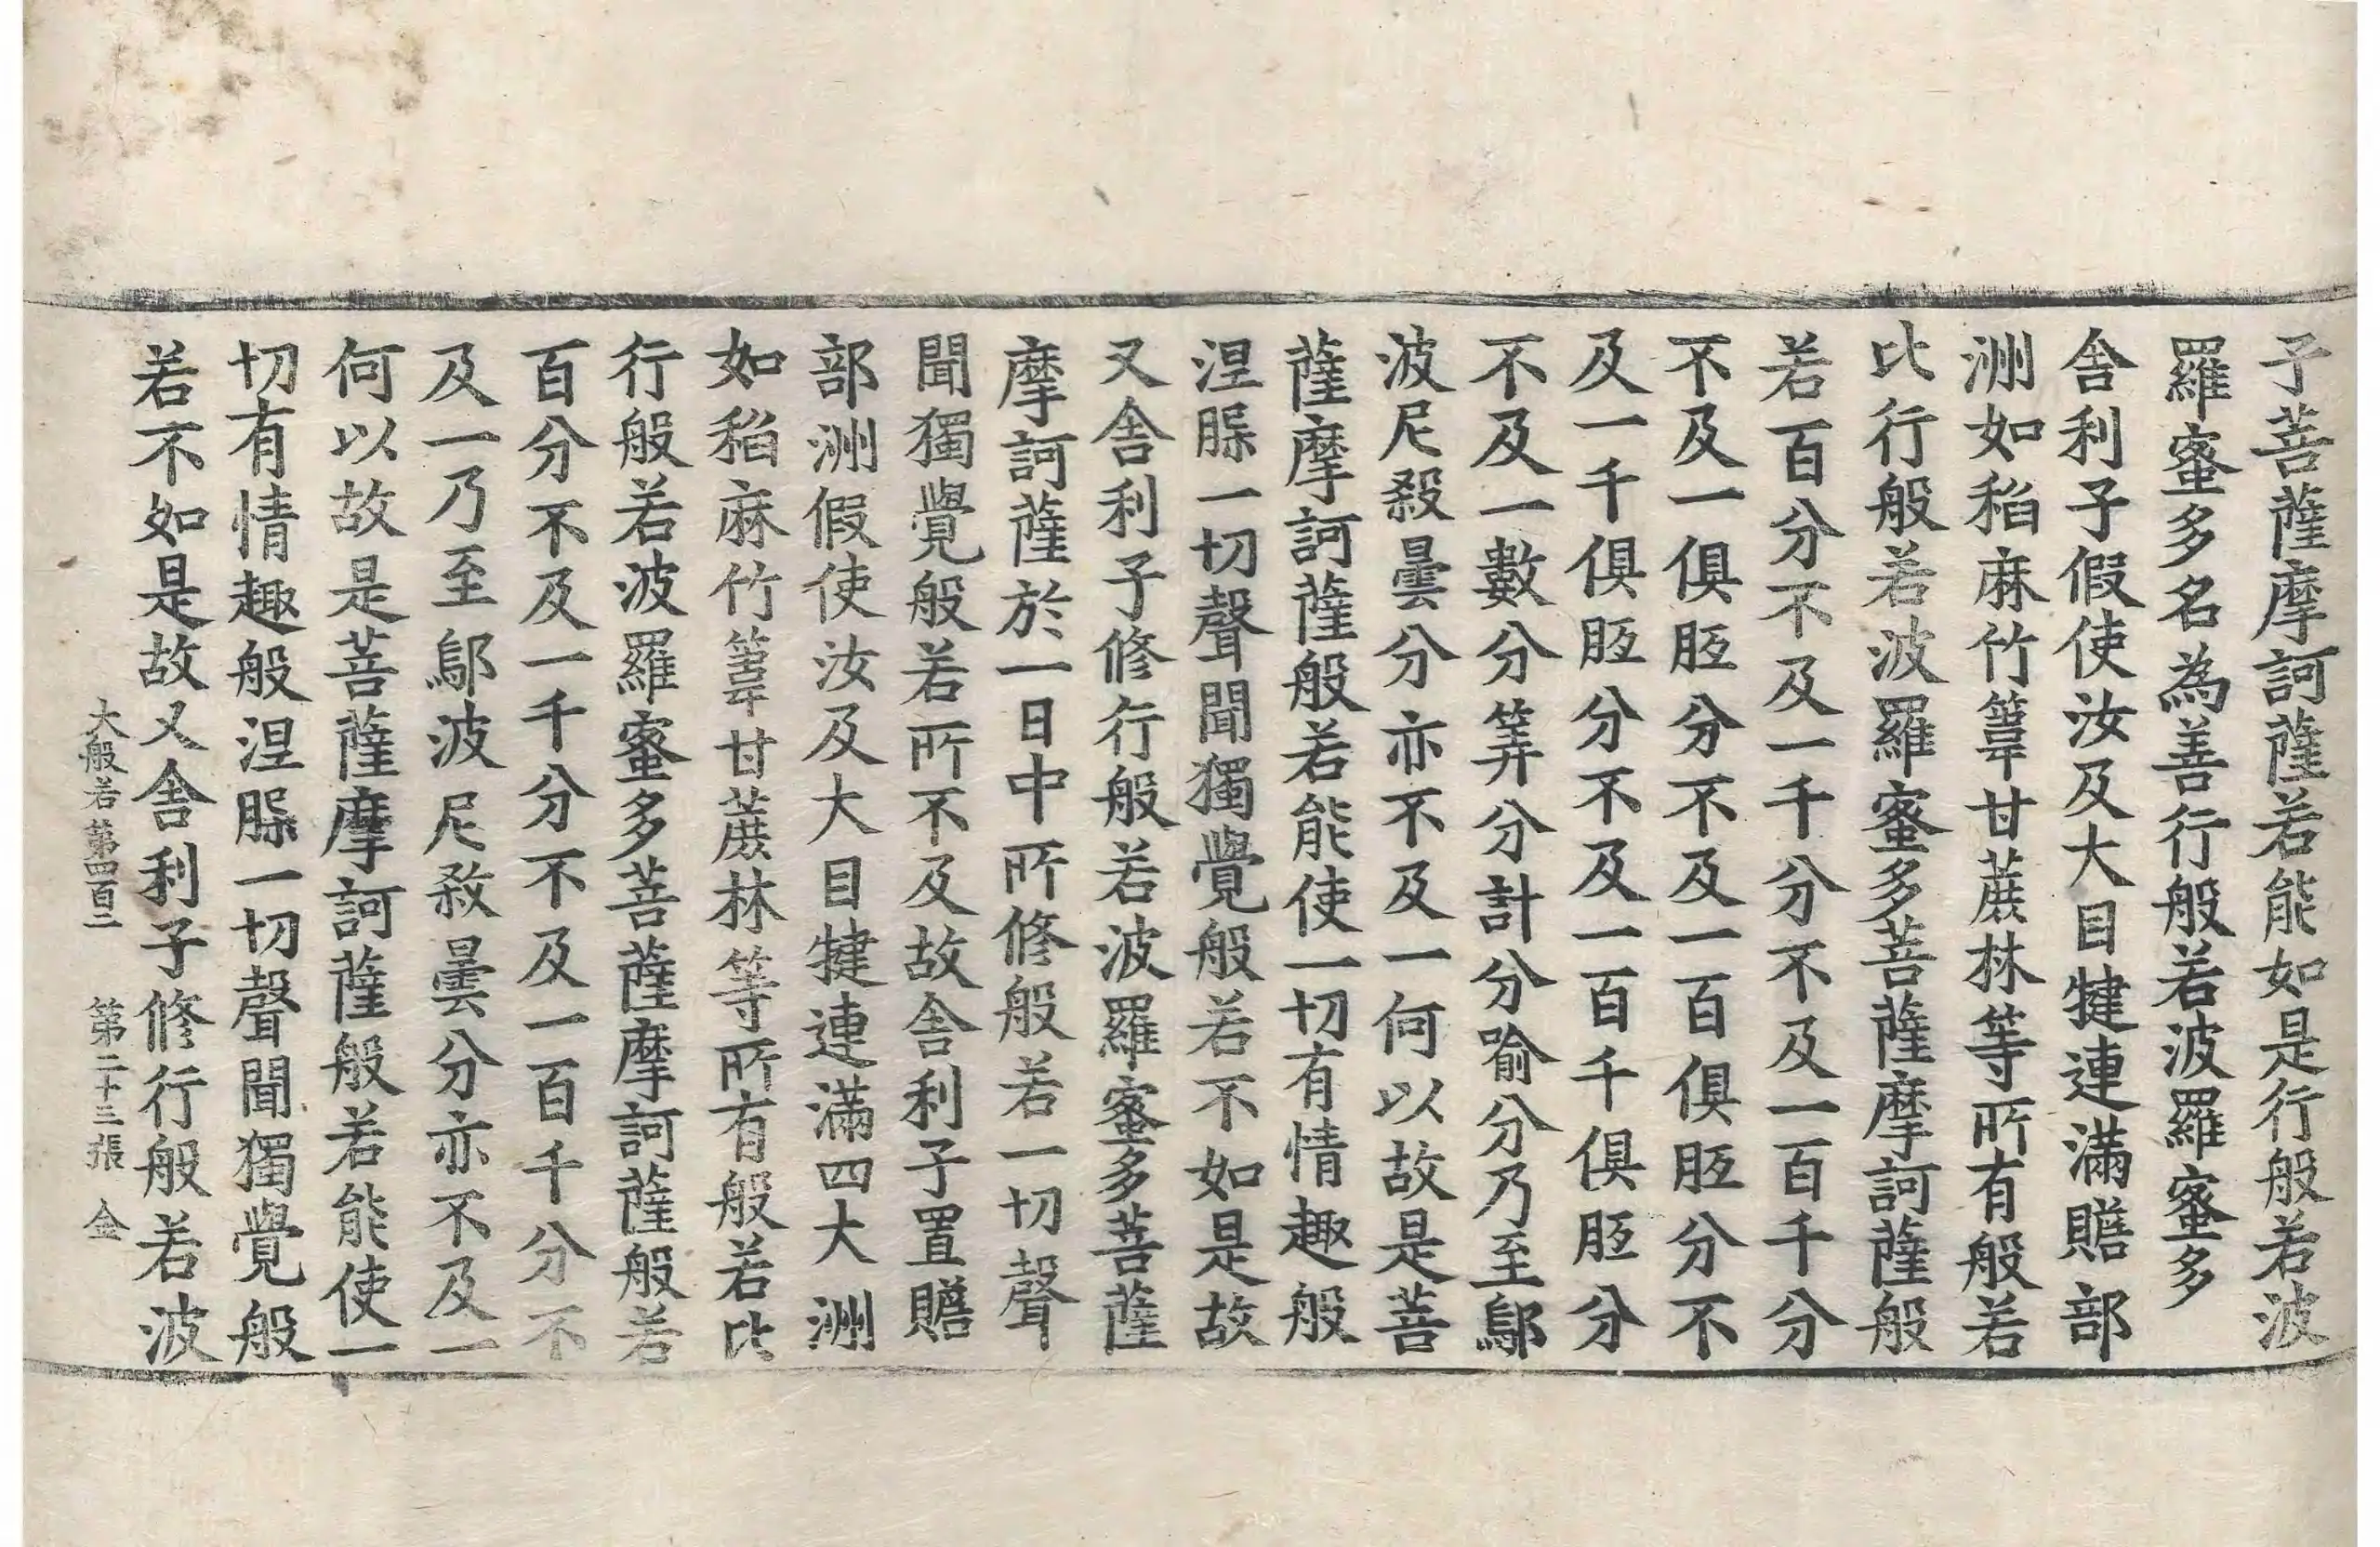 子菩薩摩訶薩若能如是行般若波
羅蜜多名為善行般若波羅蜜多
舎利子假使汝及大目犍連滿贍部
洲如稻麻竹䓲甘蔗林等所有般若
比行般若波羅蜜多菩薩摩訶薩般
若百分不及一千分不及一百千分
不及一俱胝分不及一百俱胝分不
及一千俱胝分不及一百千俱胝分
不及一數分筭分計分喻分乃至鄔
波尼殺曇分亦不及一何以故是菩
薩摩訶薩般若能使一切有情趣般
涅膎一切聲聞獨覺般若不如是故
又舎利子修行般若波羅蜜多菩薩
摩訶薩於一日中所修般若一切聲
聞獨覺般若所不及故舎利子置贍
部洲假使汝及大目犍連滿四大洲
如稻麻竹䓲甘蔗林等所有般若比
行般若波羅蜜多菩薩摩訶薩般若
百分不及一千分不及一百千分不
及一乃至鄔波尼殺曇分亦不及一
何以故是菩薩摩訶薩般若能使一
切有情趣般涅膎一切聲聞獨覺般
若不如是故又舎利子修行般若波
大般若第四百二 第二十三張 金